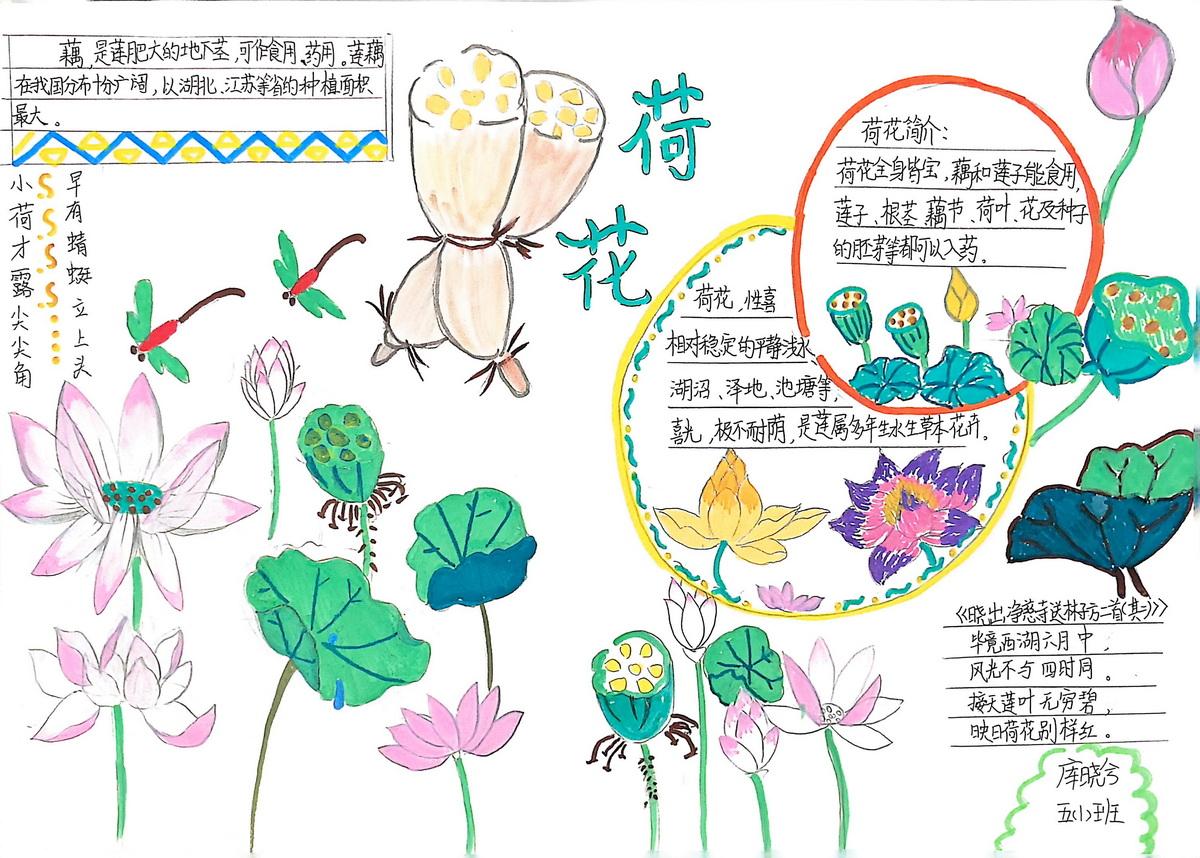 藕,是莲肥大的地下茎,可作食用、药用。莲藕
在我国分布十分广阔,以湖北、江苏等省的种植面积
最大。
小荷才露尖尖角
早有蜻蜓立上头
荷花
荷花简介:
荷花全身皆宝,藕和莲子能食用,
莲子、根茎 藕节、荷叶、花及种子
的胚芽等都可以入药。
荷花,性喜
相对稳定的平静浅水
湖沼、泽地、池塘等,
喜光,极不耐荫,是莲属多年生水生草本花卉。
《晓出净慈寺送林子方二首(其二)》
毕竟西湖六月中,
风光不与四时同。
接天莲叶无穷碧,
映日荷花别样红。
库晓兮
五(小)班